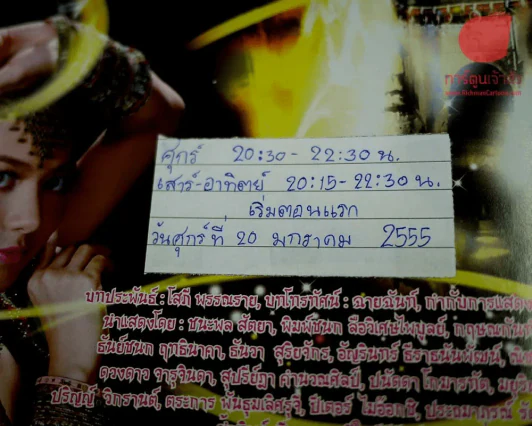 การ์ตูนเจ้า
www.RichmanCartoons
ศุกร์ 20:30 - 22:30 น.
เสาร์-อาทิตย์ 20:15 - 22:30 น.
เริ่มตอนแรก
วันศุกร์ที่ 20 มกราคม 2555
บทประพันธ์ : โสภี พรรณราย, บทโทรทัศน์ : ฉายฉันท์, กำกับการแสดง
นำแสดงโดย : ชนะพล สัตยา, พิมพ์ชนก ลือวิเศษไพบูลย์, กฤษณกัน
ธันย์ชนก ฤทธินาคา, ธันวา สุริยจักร, อัญรินทร์ ธีราธนันพัฒน์,
ดวงดาว จารุจินดา, สุปรีย์ฎา คำนวณศิลป์, ปนัดดา โกมารทัต,
ปริญญ์ วิกรานต์, ตระการ พันธุมเลิศรุจี, ปีเตอร์ ไมอ๊อกชิ,